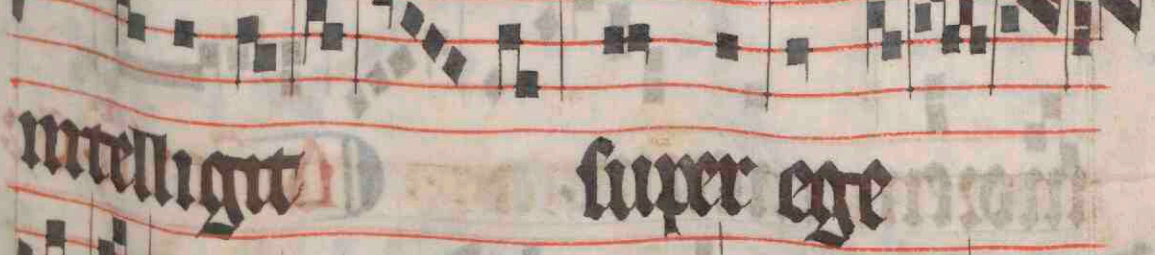 intelligit super ege